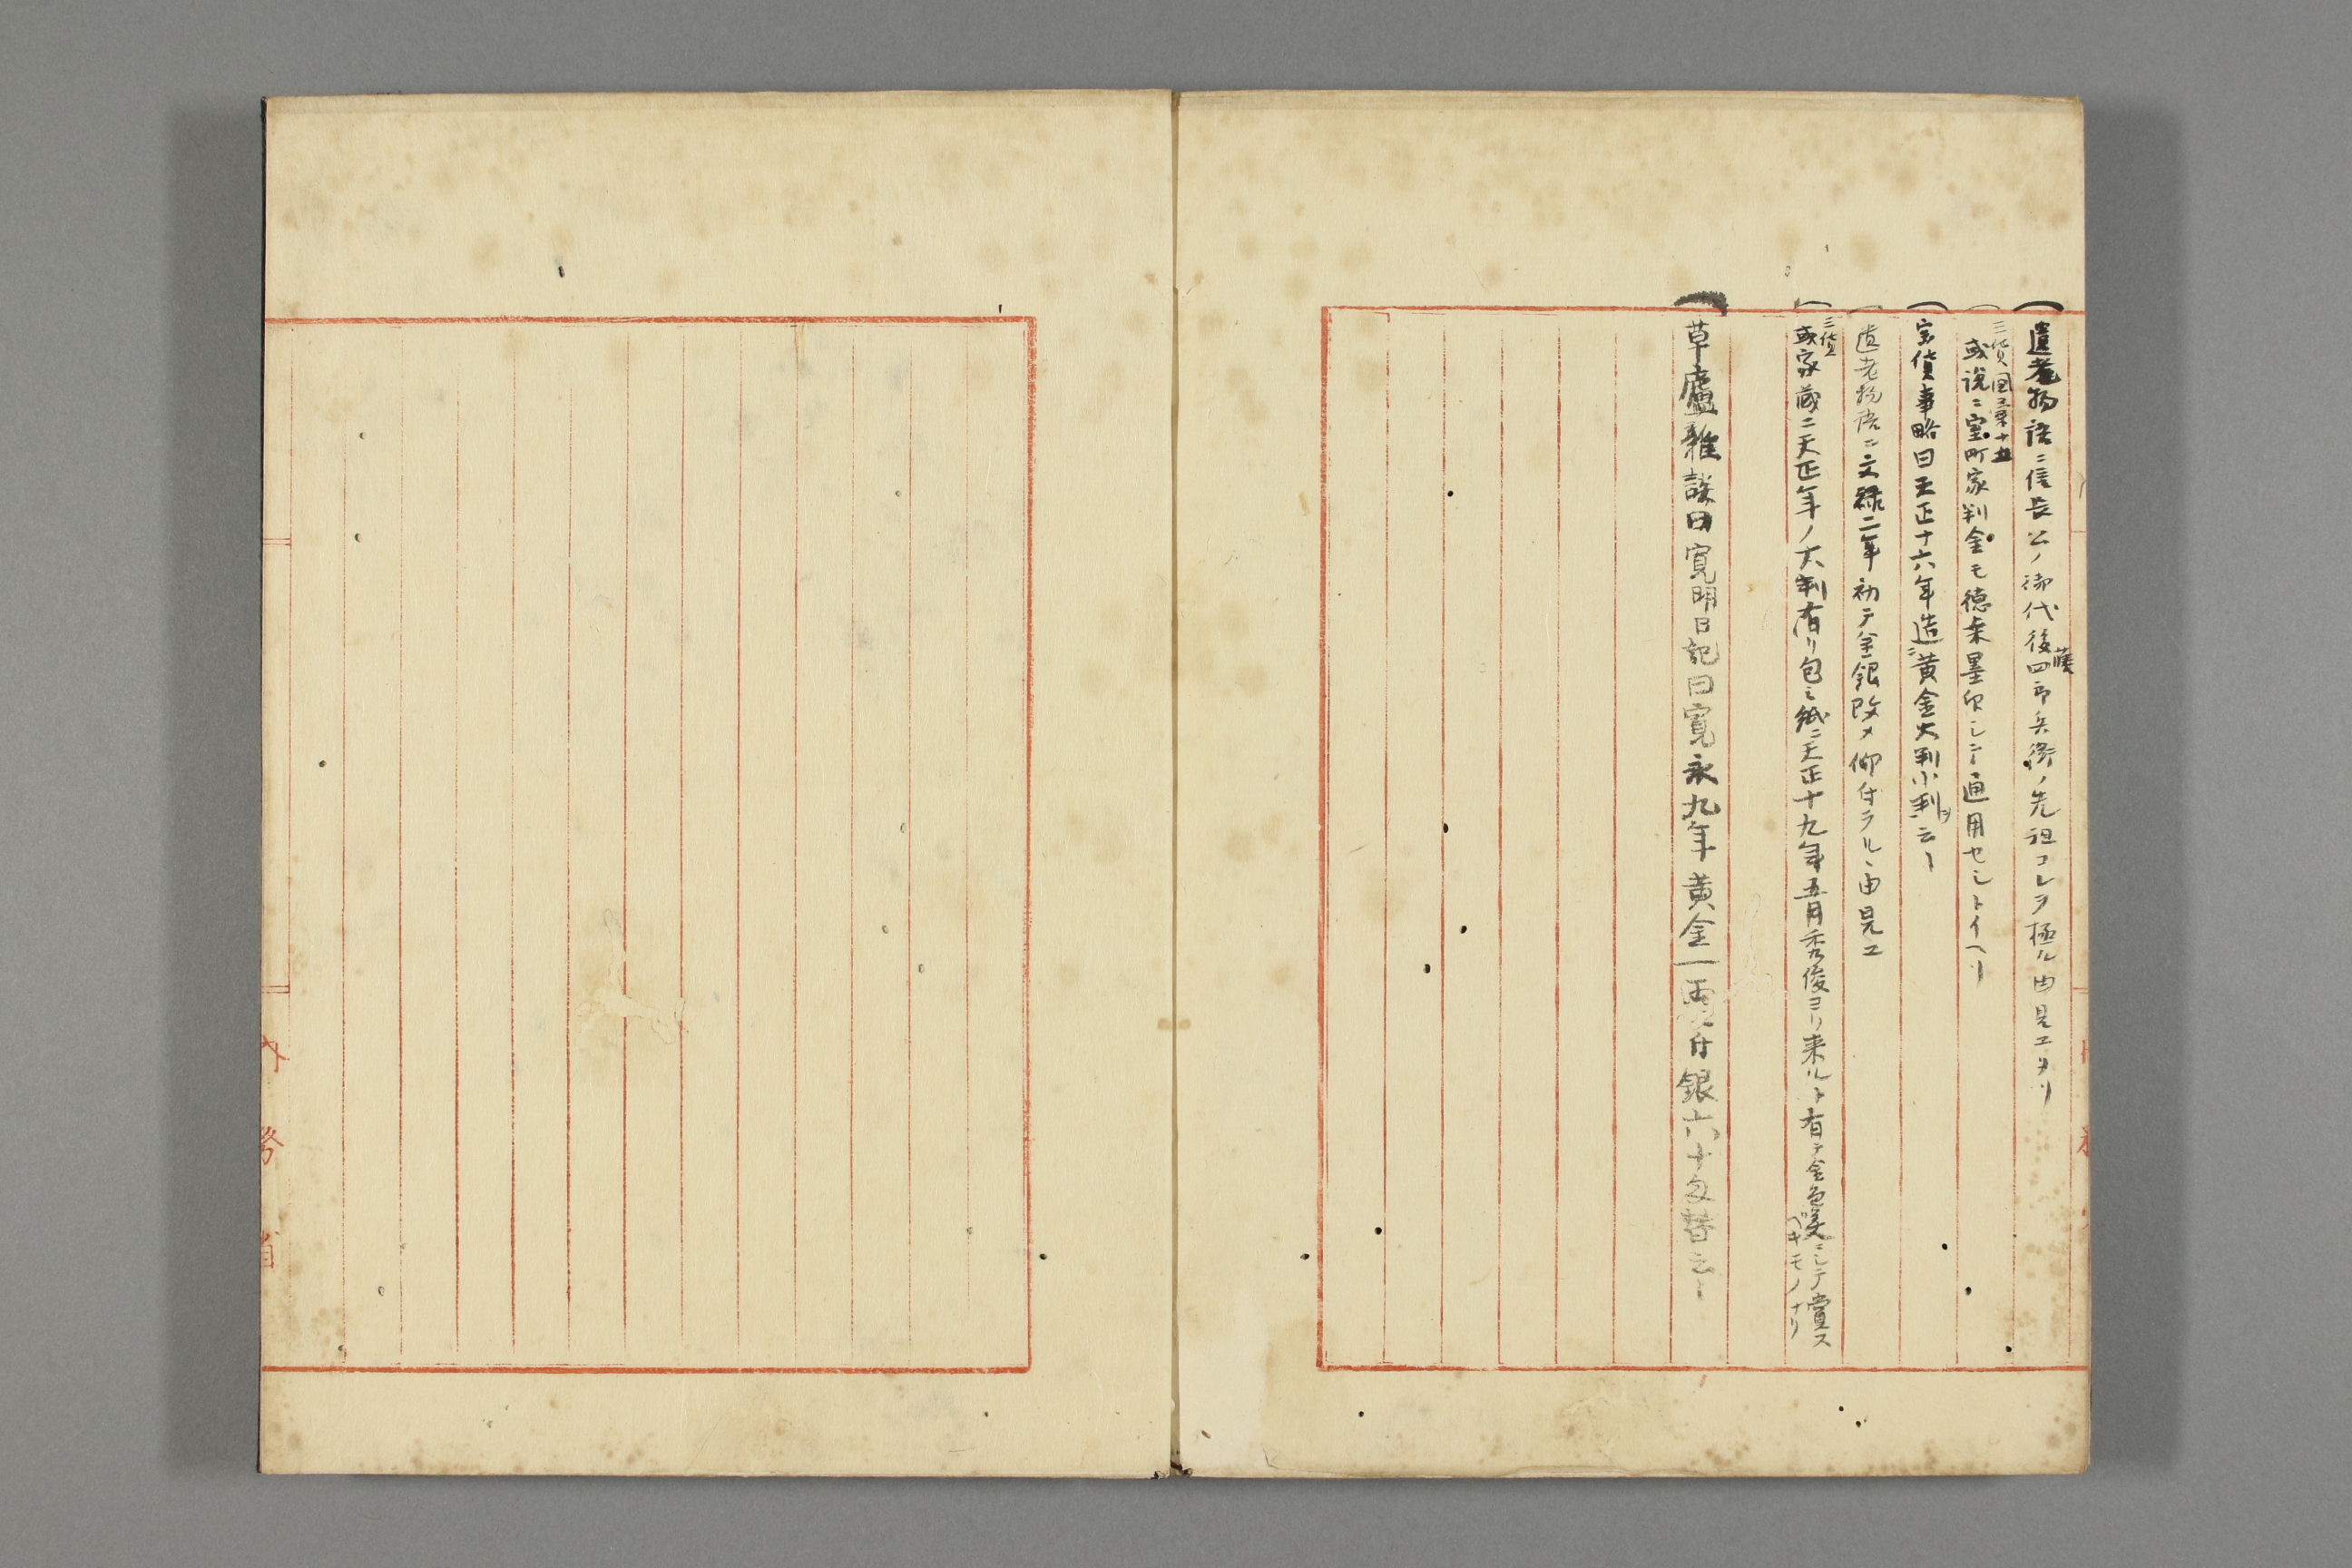 遺老物語ニ信長公ノ御代後藤四郎兵衛ノ先祖コレヲ極ル由見エタリ
三貨図彙十五
或説ニ室町家判金モ徳乗墨印シテ通用セシトイヘリ
宝貨事略曰天正十六年造ニ黄金大判小判ヲ云々
遺老物語ニ文禄二年初テ金銀改メ仰付ラルヽ由見エ
三貨
或家蔵ニ天正年ノ大判有リ包ミ紙ニ天正十九年五月秀俊ヨリ来ルト有テ金色美ニシテ賞ス
ベキモノナリ
草廬雑談曰寛明日記曰寛永九年黄金一両ニ付銀六十匁替云々
内務省